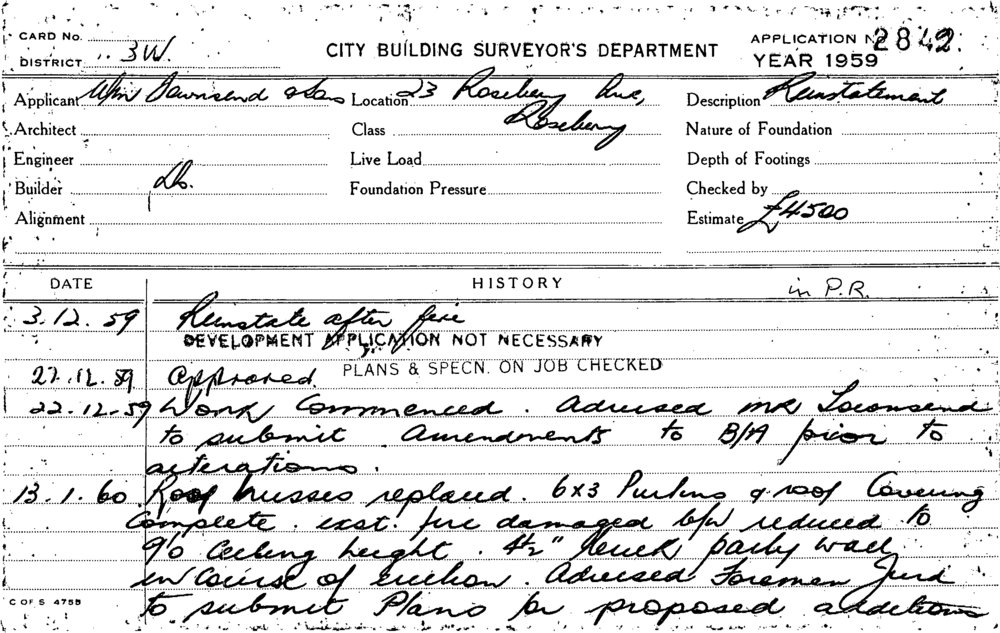 CARD No.
DISTRICT 3W.
CITY BUILDING SURVEYOR'S DEPARTMENT
APPLICATION No 2842.
YEAR 1959
Applicant Wm Townsend & Sons Location 23 Rosebery Ave, Description Reinstatement
Rosebery
Architect Class Nature of Foundation
Engineer Live Load Depth of Footings
Builder Do. Foundation Pressure Checked by
Alignment Estimate £4500
DATE HISTORY in P.R.
3.12.59 Reinstate after fire
DEVELOPMENT APPLICATION NOT NECESSARY
PLANS & SPECN. ON JOB CHECKED
Approved.
22.12.59 Work Commenced. Advised Mr Townsend
to submit Amendments to B/A prior to
alterations.
13.1.60 Roof trusses replaced. 6x3 Purlins & roof Covering
Complete. exst. fire damaged b/w reduced to
9'0 Ceiling height. 4½" brick party wall
in Course of erection. Advised Foreman
to submit Plans for proposed additions
C OF S 475B